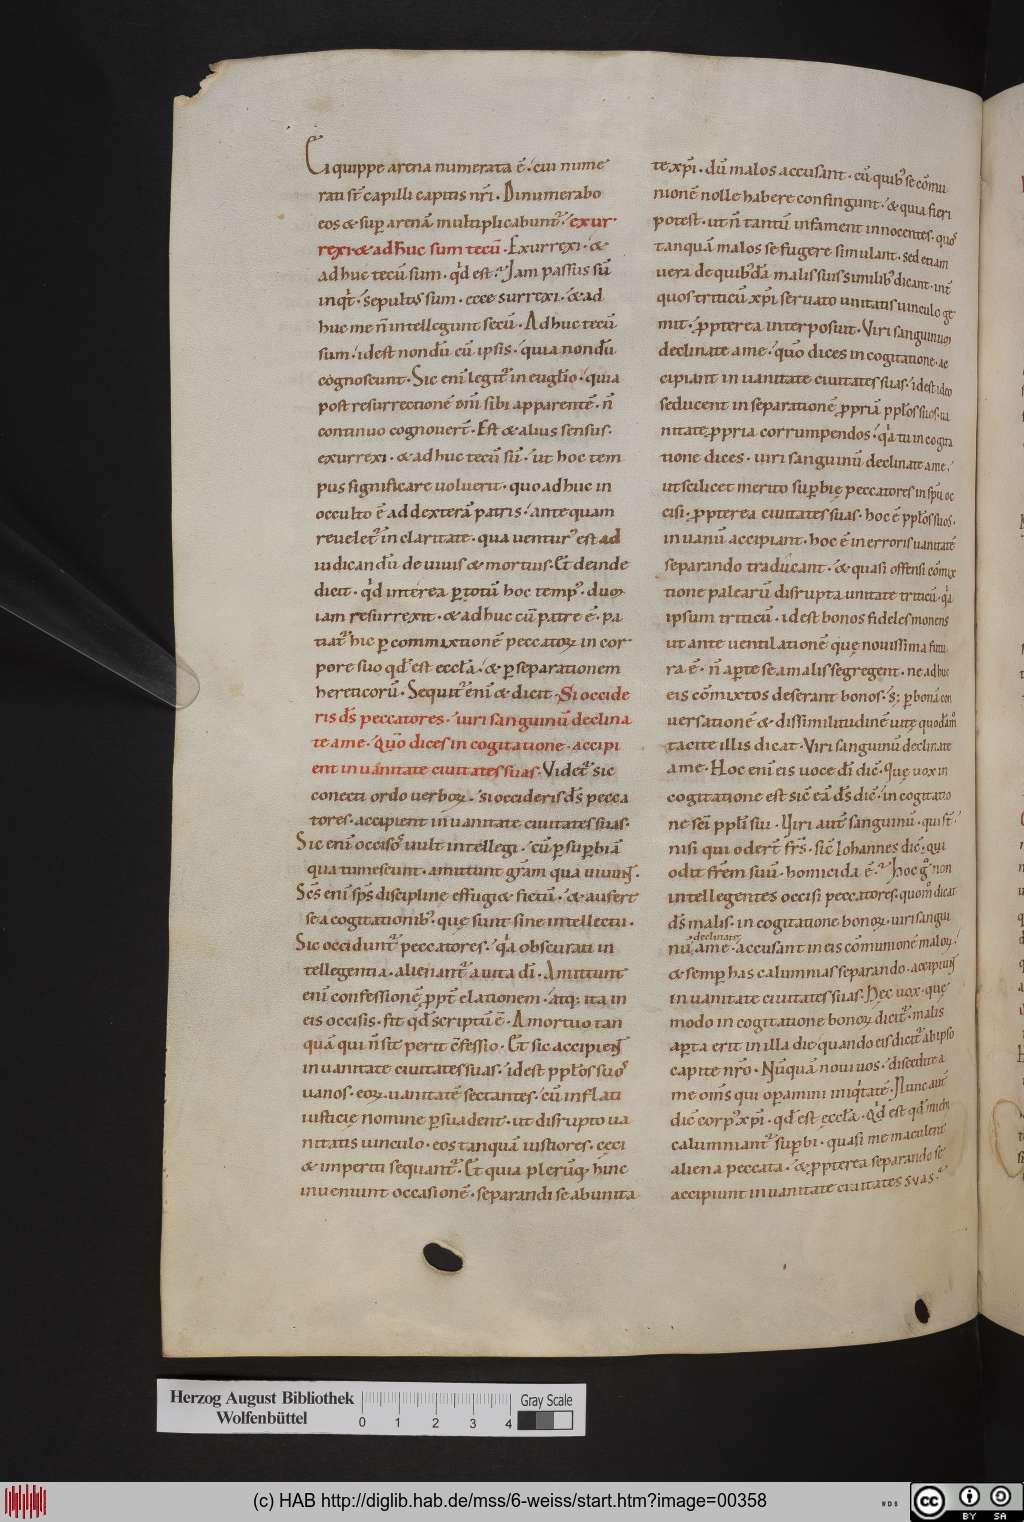 Ei quippe arena numerata ē. cui nume
rati st̄ capilli capitis nr̄i. Dinumerabo
eos & sup̱ arenā multiplicabunt᷑. exur
rexi & adhuc sum tecū. Exurrexi. &
adhuc tecū sum. qd̓ est. Iam passus sū
inqt̓. sepultꝰ sum. ecce surrexi. & ad
huc me n̄ intellegunt secū. Adhuc tecū
sum. idest nondū cū ipsis. quia nondū
cognoscunt. Sic eni̅ legit᷑ in euglio. quia
post resurrectionē dn̄i sibi apparentē. n̄
continuo cognouer̄. Est & alius sensus.
exurrexi. & adhuc tecū sū. ut hoc tem
pus significare uoluerit. quo adhuc in
occulto ē ad dexterā patris. ante quam
reuelet᷑ in claritate. qua ventur᷒ est ad
iudicandū de uiuis & mortuis. Et deinde
dicit. qd̓ interea p̱ totū hoc temp᷒. dum
iam resurrexit. & adhuc cū patre ē. pa
tiat᷑ hic p̱ commixtionē peccatoꝝ in cor
pore suo qd̓ est eccl̄a. & p̱ separationem
hereticorū. Sequit᷑ eni̅ & dicit. Si occide
ris ds̄ peccatores. uiri sanguinū declina
te a me. Quō dices in cogitatione. accipi
ent in uanitate ciuitates suas. Videt᷑ sic
conecti ordo verboꝝ. si occideris ds̄ pecca
tores. accipient in uanitate ciuitates suas.
Sic eni̅ occisos uult intellegi. cū p̱ sup̱biā
qua tumescunt. amittunt gr̄am qua uiuunt.
Sc̄s eni̅ sp̄s discipline effugi& fictū. & aufert
se a cogitationibꝰ. quę sunt sine intellectu.
Sic occidunt᷑ peccatores. qa̓ obscurati in
tellegentia. alienant᷑ a uita di̅. Amittunt
eni̅ confessionē ꝓpt̄ elationem. atq; ita in
eis occisis. fit qd̓ scriptū ē. A mortuo tan
quā qui n̄ sit perit cfessio. Et sic accipient
in uanitate ciuitates suas. idest ppl̄os suos
uanos. eoꝝ uanitatē sectantes. cū inflati
iusticię nomine p̱suadent. ut disrupto ua
nitatis uinculo. eos tanquā iustiores. cęci
& imperiti sequant᷑. Et quia plerūq; hinc
inueniunt occasionē. separandi se ab unita
te xp̄i. dū malos accusant. cū quibꝰ se cōmu
nionē nolle habere confingunt. & quia fieri
potest. ut n̄ tantū infament innocentes. quos
tanquā malos se fugere simulant. sed etiam
uera de quibꝰdā malis suis similibꝰ dicant. int̄
quos triticū xp̄i seruato unitatis uinculo ge
mit. ꝓpterea interposuit. Viri sanguinum
declinate a me. quō dices in cogitatione. ac
cipiant in uanitate ciuitates suas. idest ideo
seducent in separationē ꝓpriā ppl̄os suos. ua
nitate ꝓpria corrumpendos. qa̓ tu in cogita
tione dices. uiri sanguinū declinate a me.
ut scilicet merito sup̱bię peccatores in sp̄u oc
cisi. ꝓpterea ciuitates suas. hoc ē ppl̄os suos.
in uanū accipiant. hoc ē in erroris uanitatē
separando traducant. & quasi offensi cōmix
tione palearū disrupta unitate triticū. qa̓
ipsum triticū. idest bonos fideles monens
ut ante uentilationē quę nouissima futu
ra ē. n̄ ap̱te se a malis segregent. ne adhuc
eis cōmixtos deserant bonos. s; p̱ bonā con
uersationē & dissimilitudinē uitę quodāmo
tacite illis dicat. Viri sanguinū declinate
a me. Hoc eni̅ eis uoce di̅ dic̄. Quę uox in
cogitatione est sic eā ds̄ dic̄. in cogitatio
ne sci̅ ppl̄i sui. Viri aut̄ sanguinū. qui st̄
nisi qui oder̄ frs̄. sic̄ Iohannes dic̄. Qui
odit fr̄em suū. homicida ē. Hoc g̊ non
intellegentes occisi peccatores. quom̊ dicat
ds̄ malis. in cogitatione bonoꝝ. uiri sangui
declinate
nū a me. accusant in eis cōmunionē maloꝝ.
& semp̱ has calumnias separando. accipiunt
in uanitate ciuitates suas. Hęc uox. quę
modo in cogitatione bonoꝝ dicit᷑. malis
ap̱ta erit in illa die quando eis dicit᷑ ab ipso
capite nr̄o. Nūquā noui uos. discedite a
me om̄s qui op̱amini iniqt̓atē. Nunc aut̄
dic̄ corpꝰ xp̄i. qd̓ est eccl̄a. Qd̓ est qd̓ michi
calumniant᷑ sup̱bi. quasi me maculent
aliena peccata. & ꝓpterea separando se
accipiunt in uanitate ciuitates suas.
Herzog August Bibliothek
Wolfenbüttel
0 1 2 3 4
Gray Scale
(c) HAB http://diglib.hab.de/mss/6-weiss/start.htm?image=00358
WDB
cc
BY SA